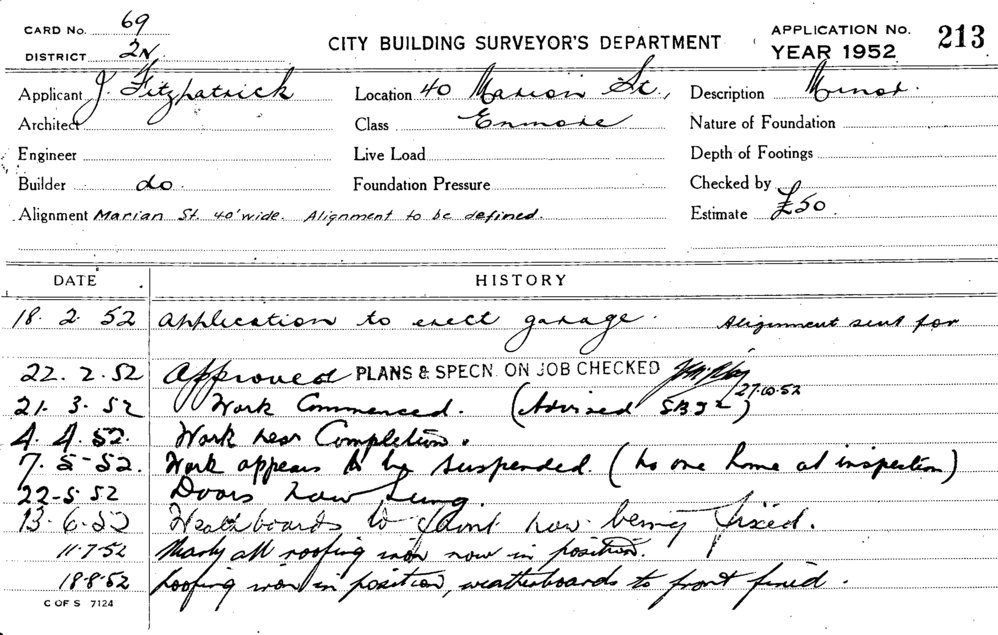 CARD No. 69
DISTRICT 2N
CITY BUILDING SURVEYOR'S DEPARTMENT
APPLICATION No. 213
YEAR 1952
Applicant J. Fitzpatrick Location 40 Marion St., Description Minor.
Architect Class Enmore Nature of Foundation
Engineer Live Load Depth of Footings
Builder do Foundation Pressure Checked by
Alignment Marian St. 40' wide. Alignment to be defined. Estimate £50
DATE HISTORY
18. 2. 52 Application to erect garage. Alignment sent for
22. 2. 52 Approved PLANS & SPECN. ON JOB CHECKED 27·10·52
21. 3. 52 Work Commenced. (Advised )
4. 4. 52. Work near Completion.
7. 5-52. Work appears to be suspended. (no one home at inspection)
22-5-52 Doors now hung
13-6-52 Weatherboards to front now being fixed.
11·7·52 Nearly all roofing iron now in position.
18·8·52 Roofing iron in position, weatherboards to front fixed.
C OF S 7124